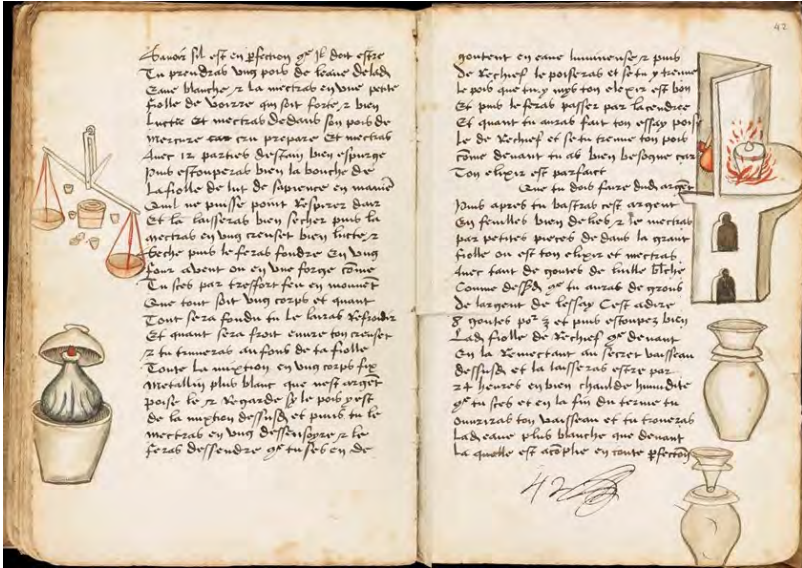 Savoir sil est en pfection q̄ Il doit estre
Tu prendras ung pois de leaue de lad
Eaue blanche / & la mectras en une petite
fiolle de voirre qui soit forte / & bien
Luctee et mectras dedans son pois de
mercure cru prepare Et mectras
Avec 12 parties destain bien espurge
Puis estouperas bien la bouche de
La fiolle de lut de sapience en maniē
Quil ne puisse point Respirer dair
Et la laisseras bien secher puis la
mectras en ung creuset bien lucte / &
Seche puis le feras fondre En ung
four a vent ou en une forge cōme
Tu sces par tresfort feu en mouvēt
Que tout soit ung corps et quant
Tout sera fondu tu le lairas Refroidir
Et quant sera froit euvre ton creuset
& tu trouveras au fons de ta fiolle
Toute la mixtion en ung corps fix
Metallin plus blanc que nest argēt
poise le / & Regarde sy le pois y est
de la mixtion dessusd et puis tu le
mectras en ung dessensoyre / & le
feras dessendre q̄ tu ses en de
42
goutent en eaue lumineuse / & puis
De Rechief le poiseras et se tu y treuve
le pois que tu y mys ton elexir est bon
Et puis le feras passer par la cendree
Et quant tu auras fait ton essay poise
Le de Rechief et se tu treuve ton pois
cōme devant tu as bien besogne car
Ton elixir est parfaict
Que tu dois faire dud argēt
Puis apres tu bastras cest argent
En feuilles bien deliees / & le mectras
par petites pieces dedans la grant
fiolle ou est ton elixir et mectras
Avec tant de goutes de luille blēche
Comme dessd q̄ tu auras de grous
De largent de lessay Cest adire
8 goutes por ʒ et puis estoupez bien
Lad fiolle de Rechief q̄ devant
En la Remectant au secret vaisseau
dessusd et la laisseras estre par
24 heures en bien chaulde humidite
q̄ tu sces et en la fin du terme tu
ouvriras ton vaisseau et tu troveras
Lad eaue plus blanche que devant
La quelle est acōplie en toute pfection
42